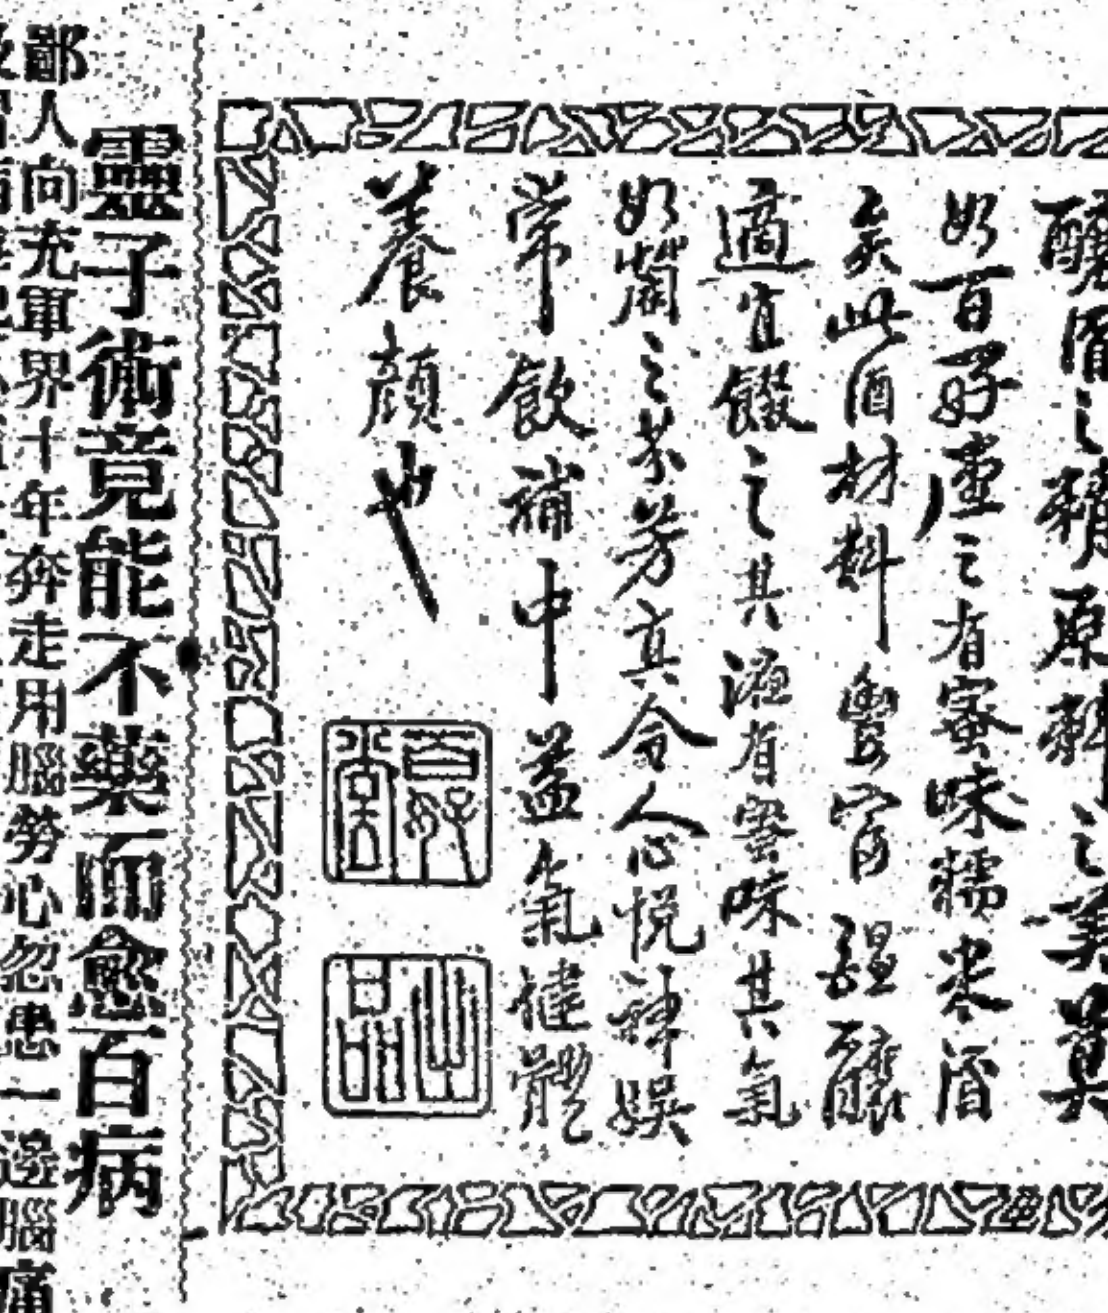 釀酒之精原料之美莫
如百好壺之有蜜味糯米酒
矣此酒材料豐富醞釀
適宜餟之其液有蜜味其氣
如蘭之芬芳真令人心悅神娛
常飲補中益氣健體
養顏也
百好堂
出品
靈子術竟能不藥而愈百病
鄙人向充軍界十年奔走用腦勞心忽患一邊腦痛